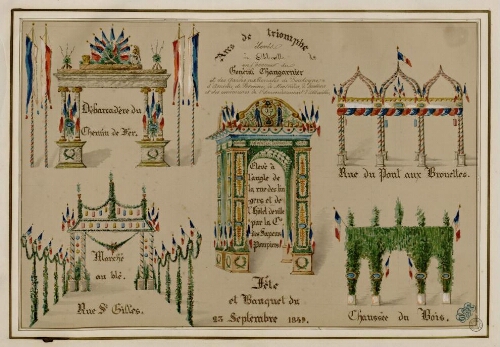 Arcs de triomphe
élevés
à Abbeville
en l'honneur du
Général Changarnier
Débarcadère du
Chemin de Fer.
Rue du Pont aux Brouettes.
Elevé à
l'angle de
la rue des lin
gers et de
l'Hôtel de ville
par la Cie
des Sapeurs
Pompiers.
Marché
au blé.
Rue St Gilles.
Chaussée du Bois.
Fête
et Banquet du
23 Septembre 1849.